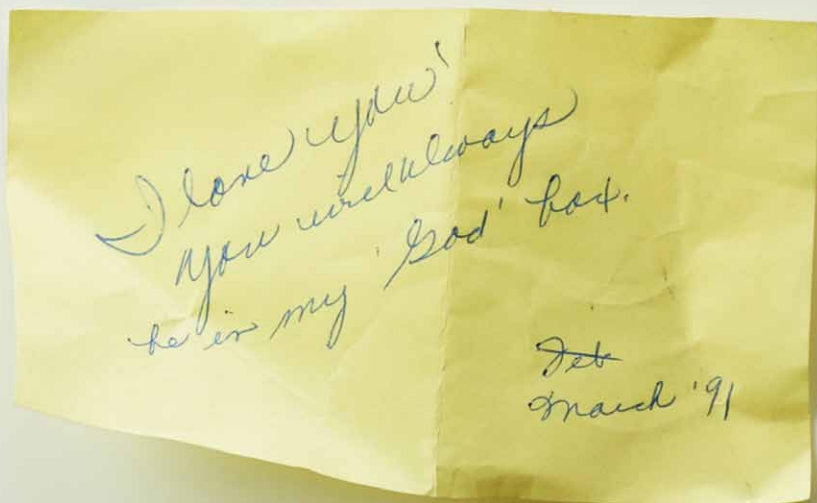 I love you!
You will always
be in my 'God' box.
Feb
March '91